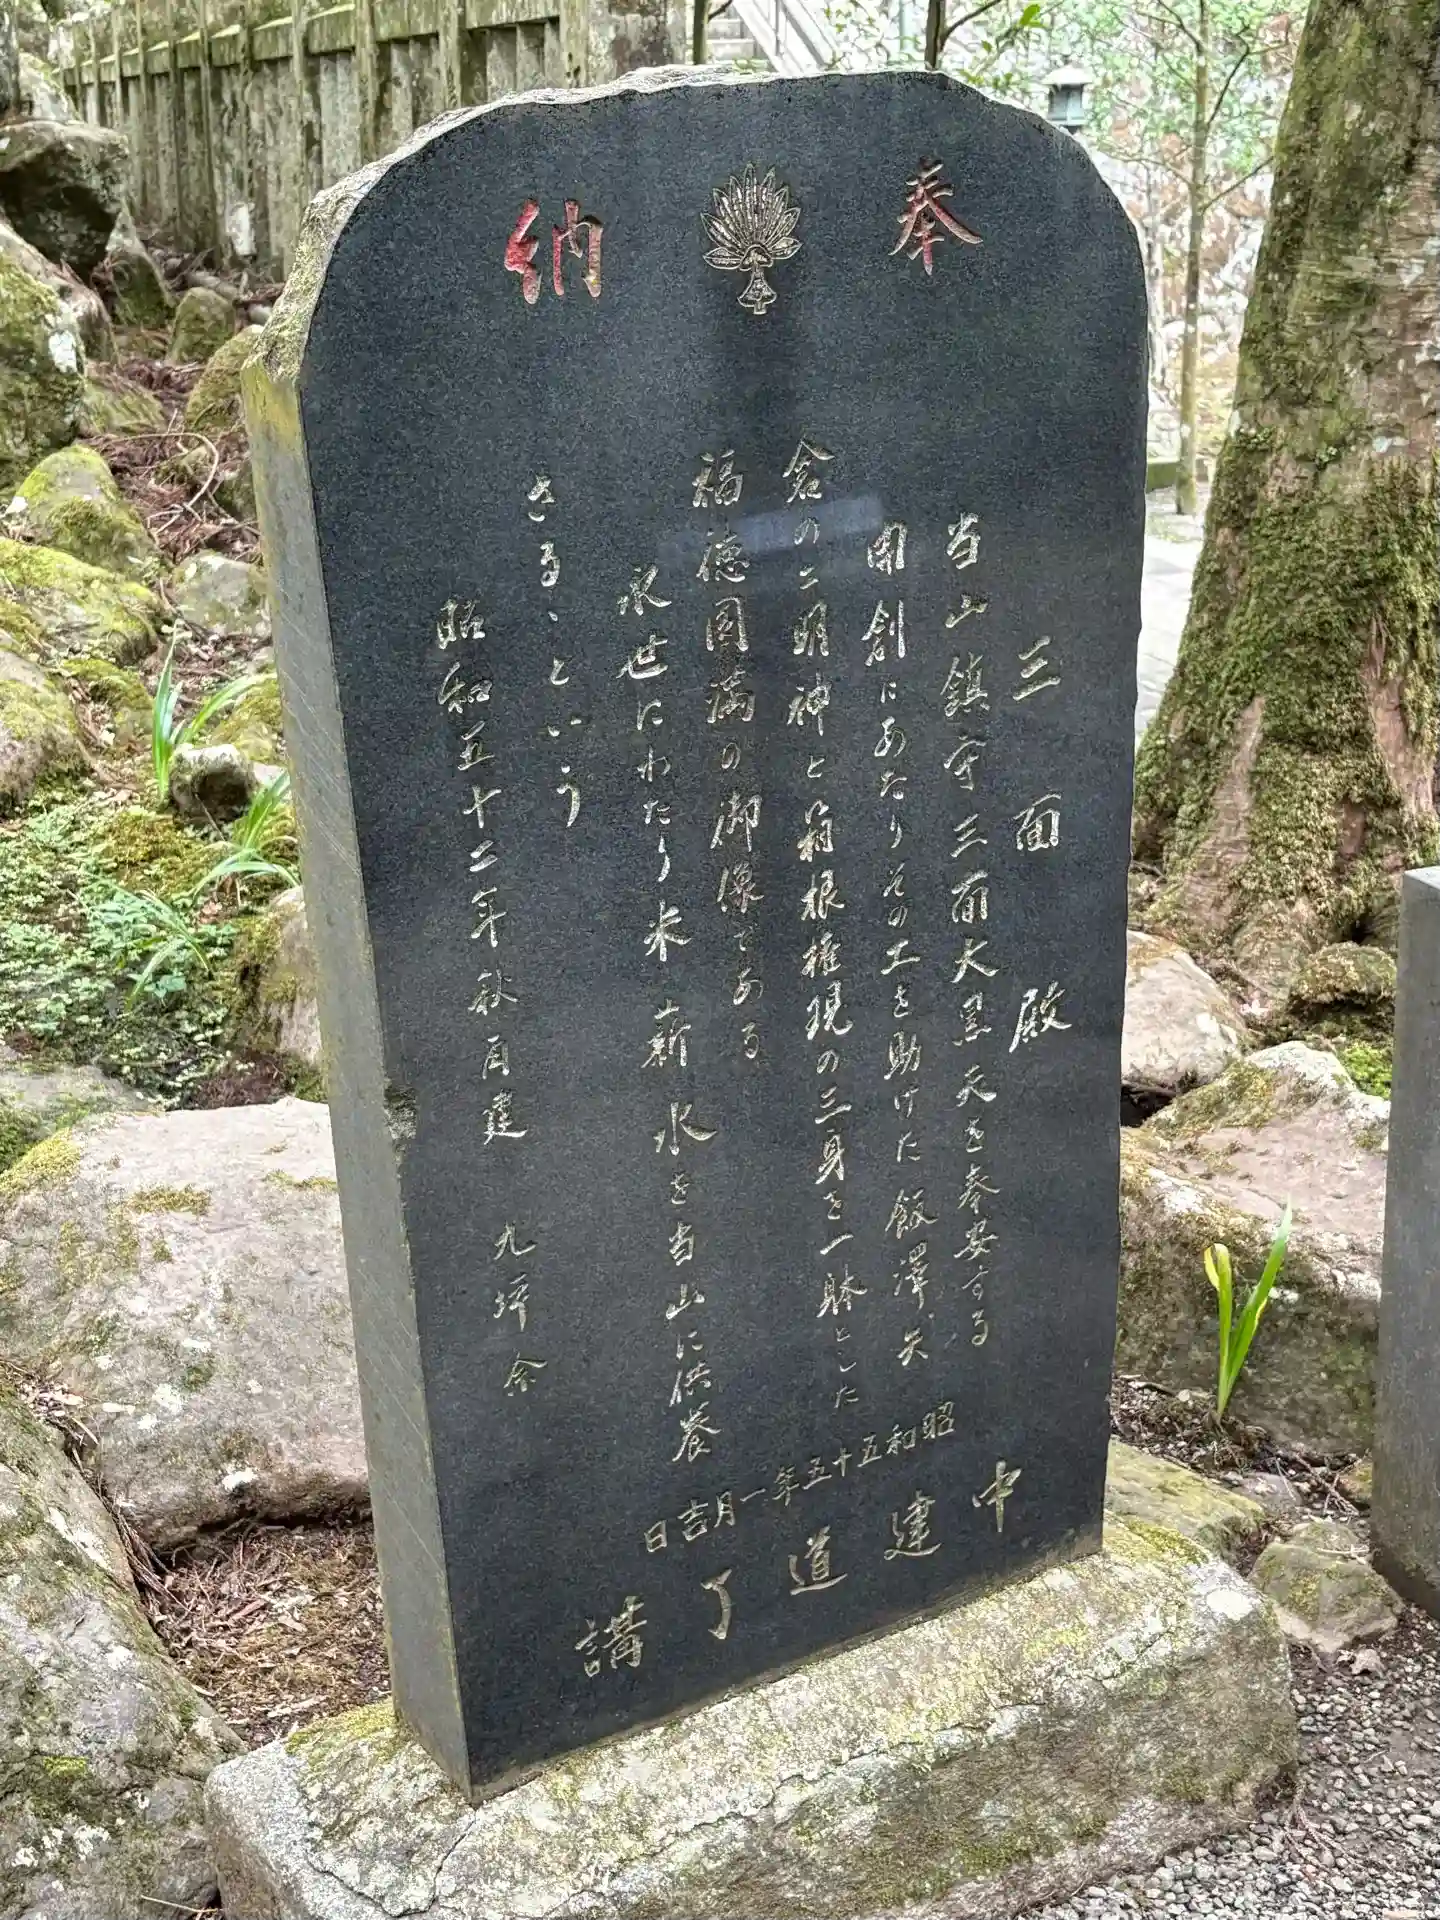 奉納
三面殿
当山鎮守三面大黒天を奉安する
開創にあたりその工を助けた飯澤、矢
倉の二明神と箱根権現の三身を一躰とした
福徳円満の御像である
永世にわたり米 薪 水を当山に供養
さるゝという
昭和五十二年秋再建 九坪
昭和五十五年一月吉日
中建道了講